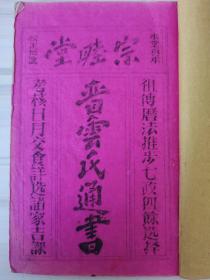 宗睦堂
祖傳曆法推步七政四餘選擇
晉雲氏通書
考核日月交食詳選諸家吉課